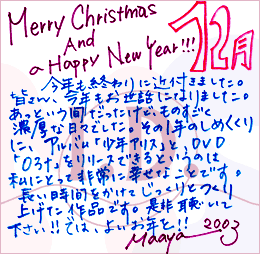 Merry Christmas
And
a Happy New Year!!!
12月
今年も終わりに近付きました。
皆さん、今年もお世話になりました。
あっという間だったけど、ものすごく
濃厚な日々でした。その1年のしめくくり
に、アルバム「少年アリス」と、DVD
「03†」をリリースできるというのは
私にとって非常に幸せなことです。
長い時間をかけてじっくりとつくり
上げた作品です。是非聴いて
下さい!!では、よいお年を!!
Maaya 2003